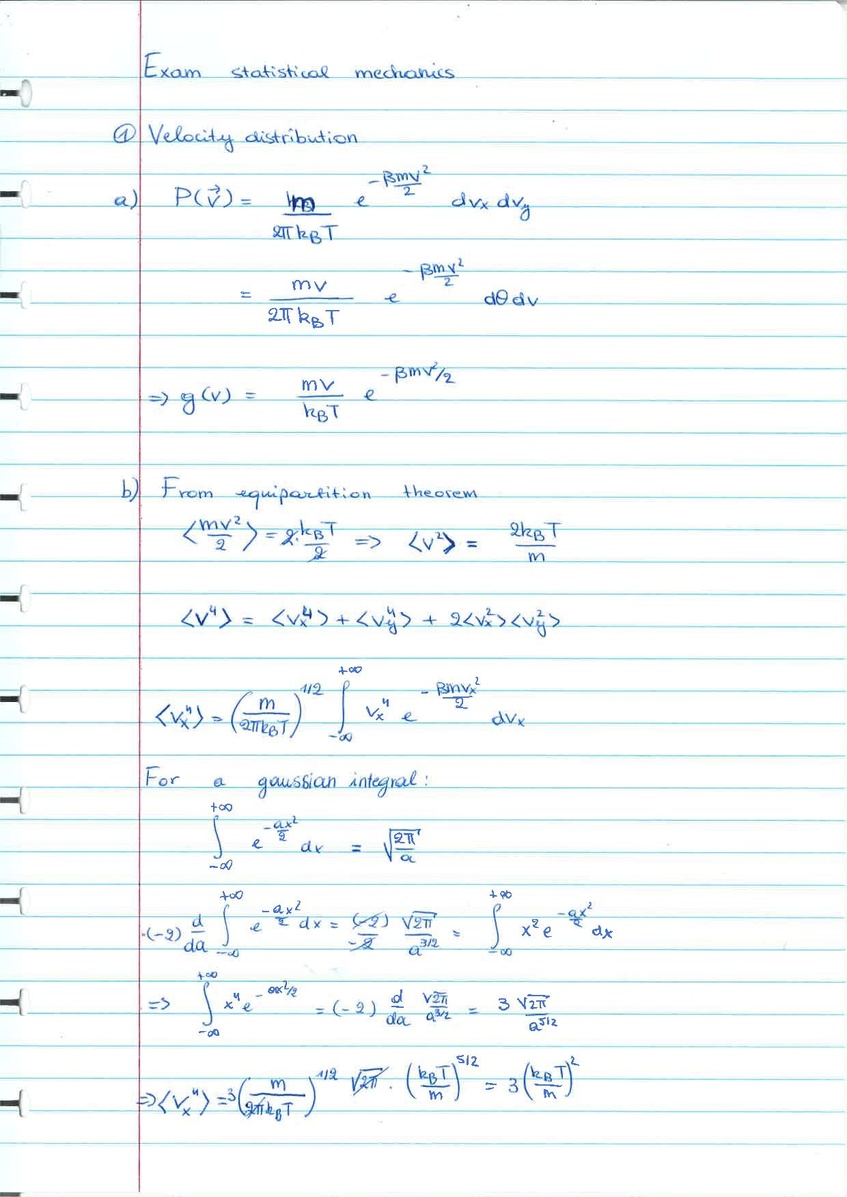 Exam statistical mechanics
① Velocity distribution
a) P(v⃗) = m / (2πk_BT) e^(-βmv²/2) dv_x dv_y
= mv / (2πk_BT) e^(-βmv²/2) dθ dv
=> g(v) = mv / (k_BT) e^(-βmv²/2)
b) From equipartition theorem
<mv²/2> = 2·k_BT/2 => <v²> = 2k_BT / m
<v⁴> = <v_x⁴> + <v_y⁴> + 2<v_x²><v_y²>
<v_x⁴> = (m / (2πk_BT))^(1/2) ∫_{-∞}^{+∞} v_x⁴ e^(-βmv_x²/2) dv_x
For a gaussian integral:
∫_{-∞}^{+∞} e^(-ax²/2) dx = √(2π/a)
·(-2) d/da ∫_{-∞}^{+∞} e^(-ax²/2) dx = (-2)/(-2) √2π / a^(3/2) = ∫_{-∞}^{+∞} x² e^(-ax²/2) dx
=> ∫_{-∞}^{+∞} x⁴ e^(-ax²/2) = (-2) d/da √2π / a^(3/2) = 3 √2π / a^(5/2)
=> <v_x⁴> = 3 (m / (2πk_BT))^(1/2) √2π · (k_BT / m)^(5/2) = 3 (k_BT / m)²